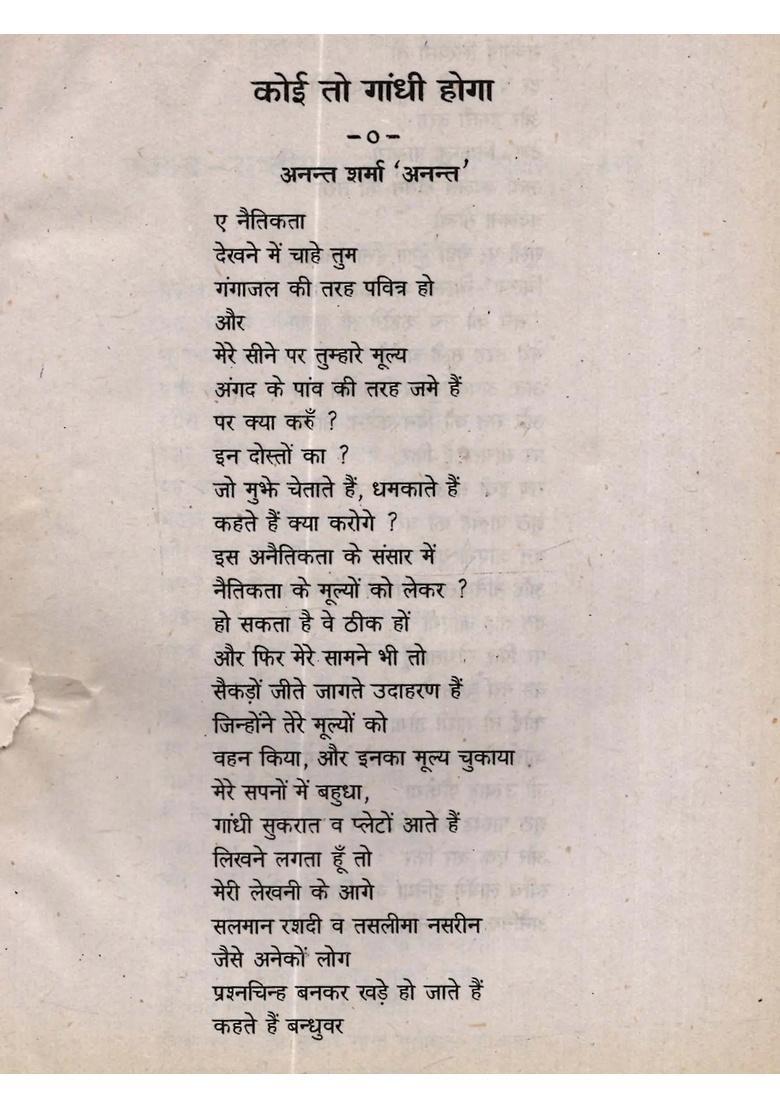 कोई तो गांधी होगा
-०-
अनन्त शर्मा ‘अनन्त’
ए नैतिकता
देखने में चाहे तुम
गंगाजल की तरह पवित्र हो
और
मेरे सीने पर तुम्हारे मूल्य
अंगद के पांव की तरह जमे हैं
पर क्या करुँ ?
इन दोस्तों का ?
जो मुझे चेताते हैं, धमकाते हैं
कहते हैं क्या करोगे ?
इस अनैतिकता के संसार में
नैतिकता के मूल्यों को लेकर ?
हो सकता है वे ठीक हों
और फिर मेरे सामने भी तो
सैकड़ों जीते जागते उदाहरण हैं
जिन्होंने तेरे मूल्यों को
वहन किया, और इनका मूल्य चुकाया
मेरे सपनों में बहुधा,
गांधी सुकरात व प्लेटों आते हैं
लिखने लगता हूँ तो
मेरी लेखनी के आगे
सलमान रशदी व तसलीमा नसरीन
जैसे अनेकों लोग
प्रश्नचिन्ह बनकर खड़े हो जाते हैं
कहते हैं बन्धुवर